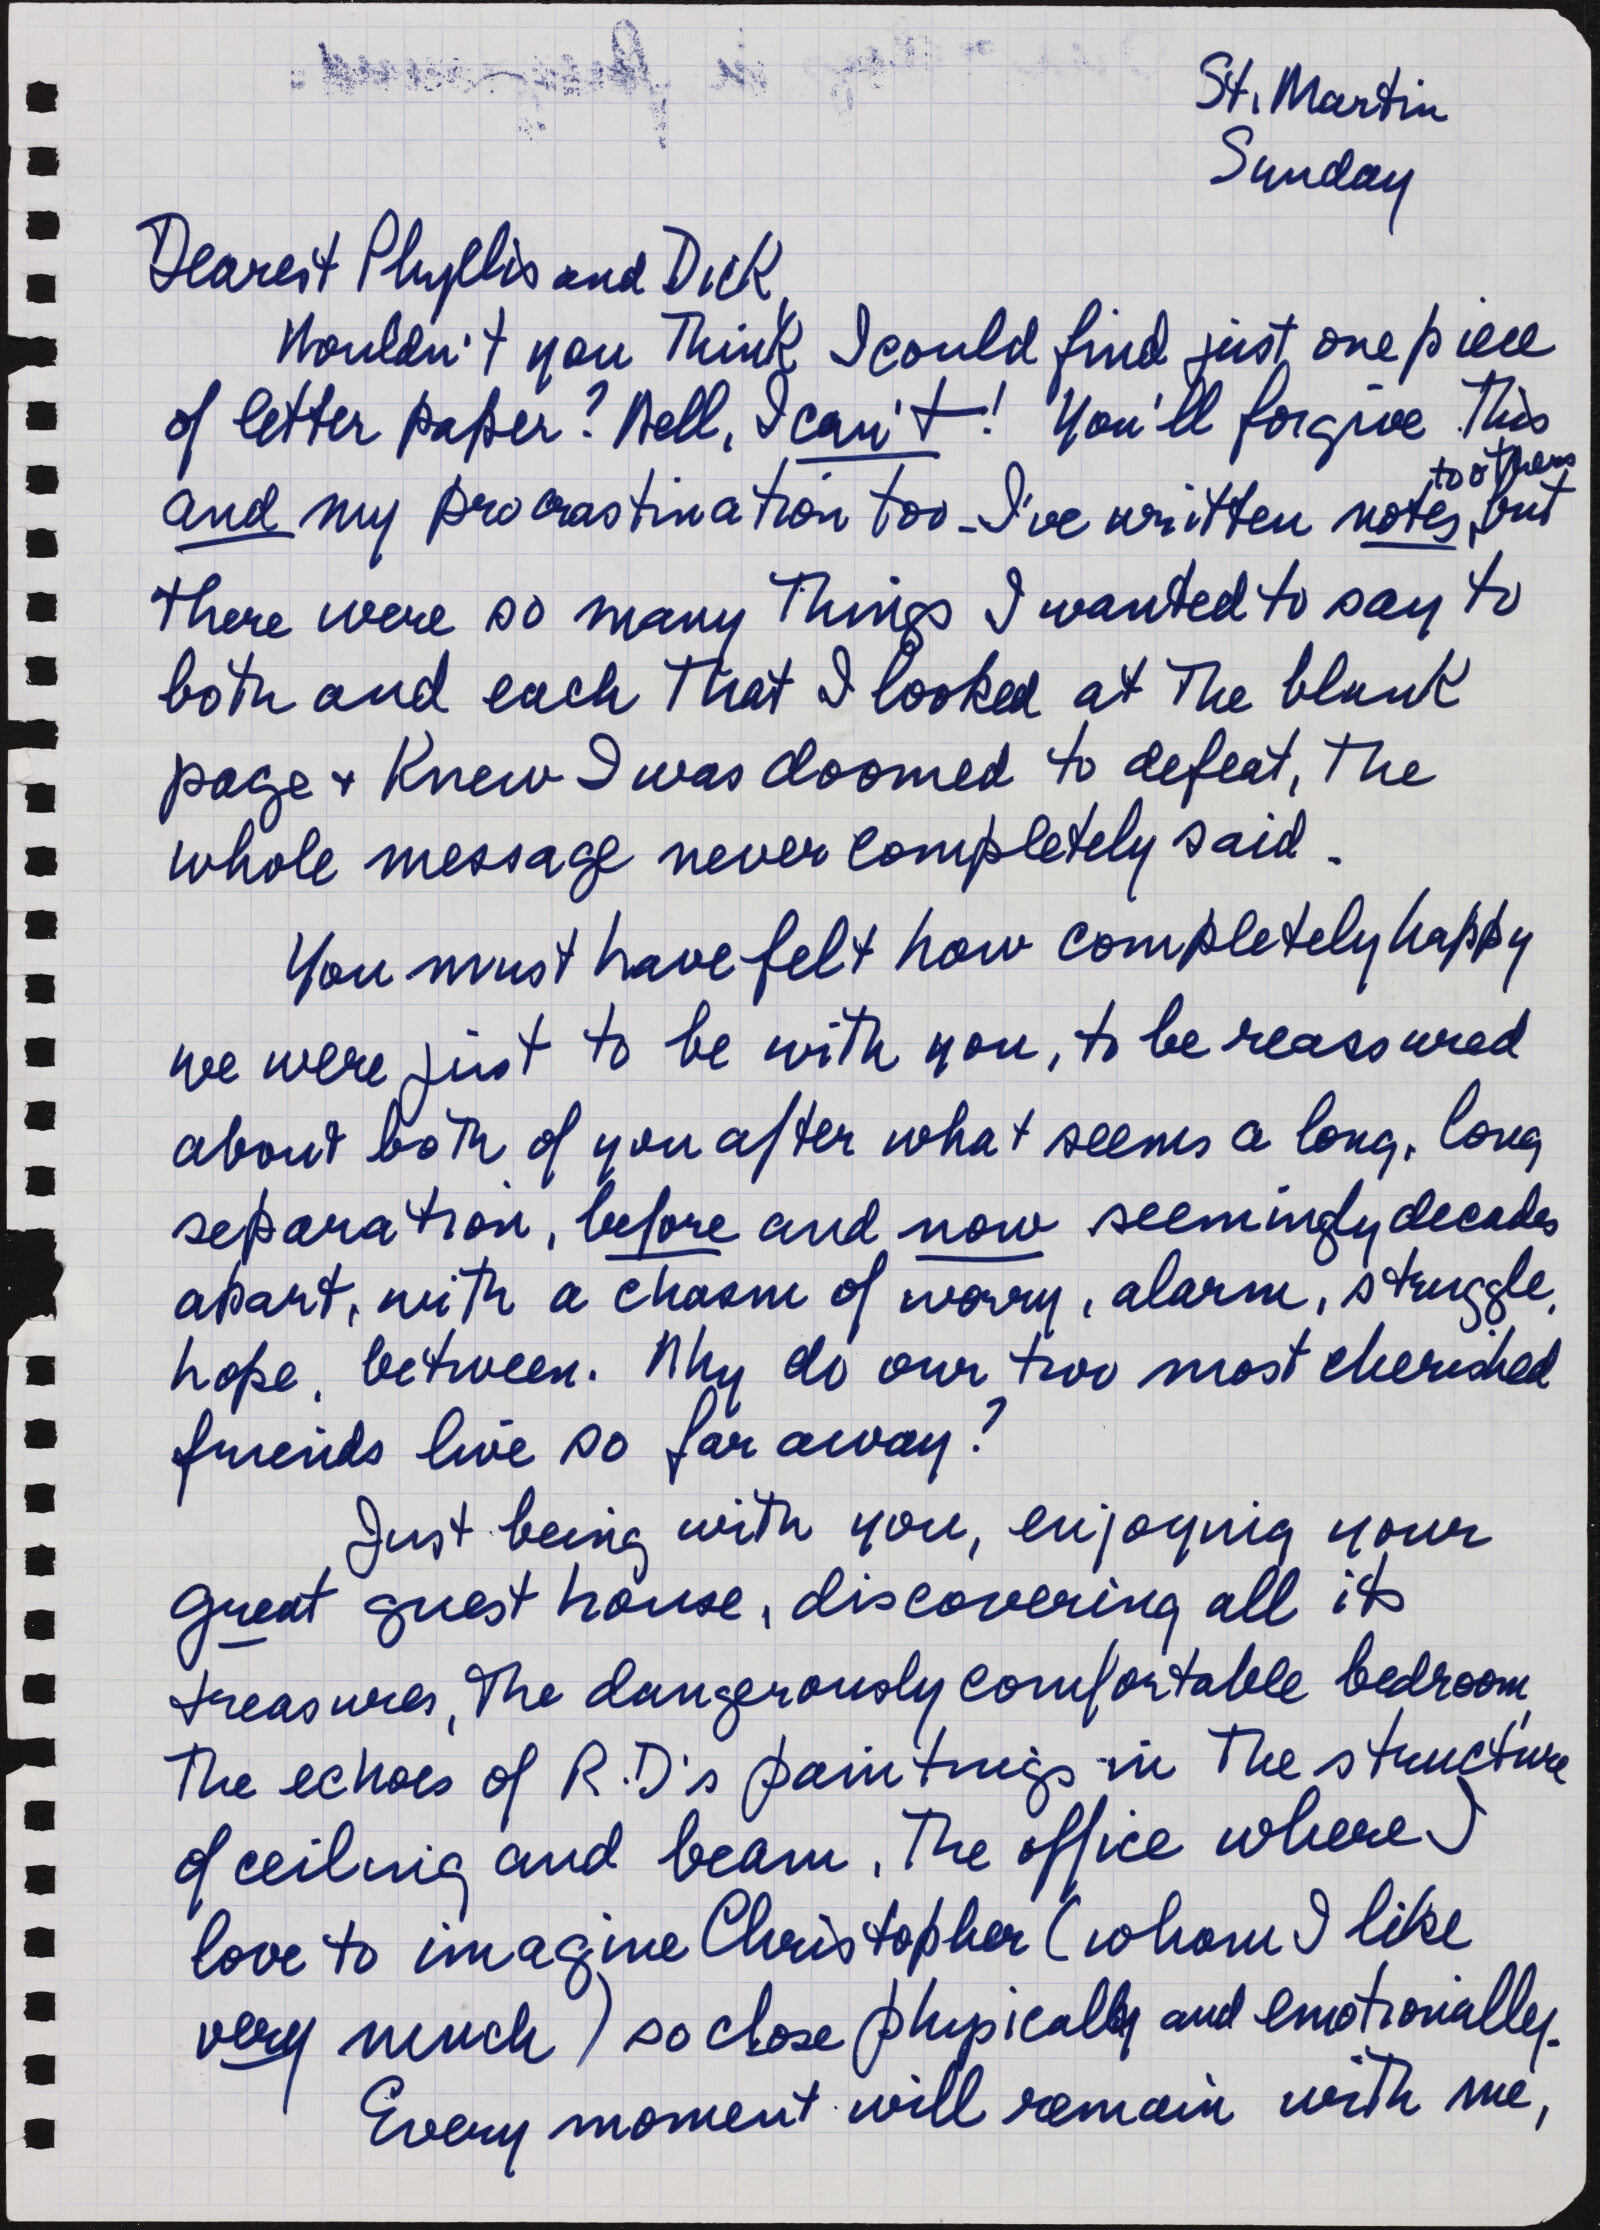 St. Martin
Sunday
Dearest Phyllis and Dick,
Wouldn't you think I could find just one piece
of letter paper? Well, I can't! You'll forgive this
and my procrastination too - I've written notes to others, but
there were so many things I wanted to say to
both and each that I looked at the blank
page + knew I was doomed to defeat, the
whole message never completely said.
You must have felt how completely happy
we were just to be with you, to be reassured
about both of you after what seems a long, long
separation, before and now seemingly decades
apart, with a chasm of worry, alarm, struggle,
hope, between. Why do our two most cherished
friends live so far away?
Just being with you, enjoying your
great guest house, discovering all its
treasures, the dangerously comfortable bedroom,
the echoes of R.D's paintings in the structure
of ceiling and beam, the office where I
love to imagine Christopher (whom I like
very much) so close physically and emotionally.
Every moment will remain with me,